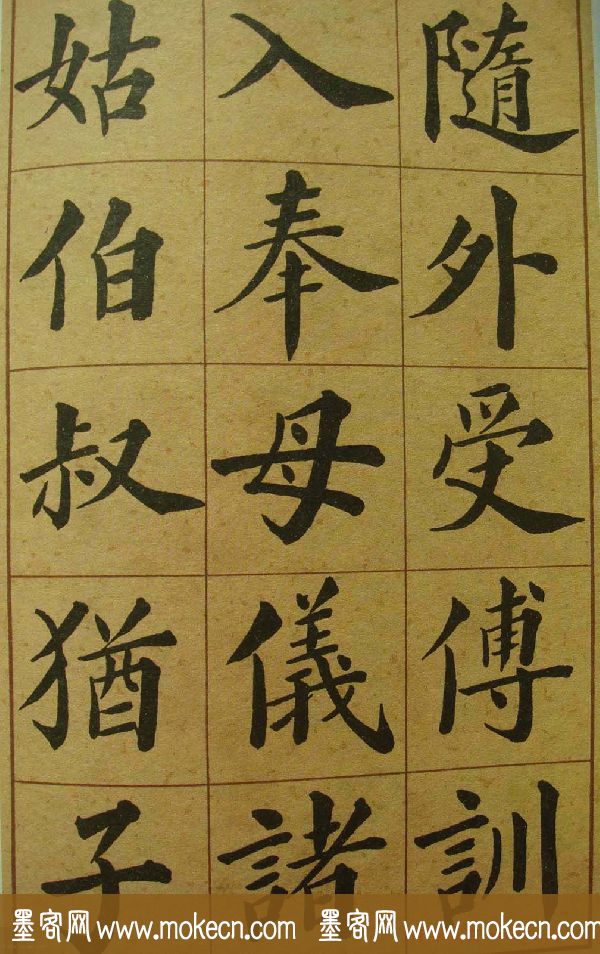 隨外受傅訓
入奉母儀諸
姑伯叔猶子
墨客网 www.mokecn.com 墨客网 www.mokecn.com